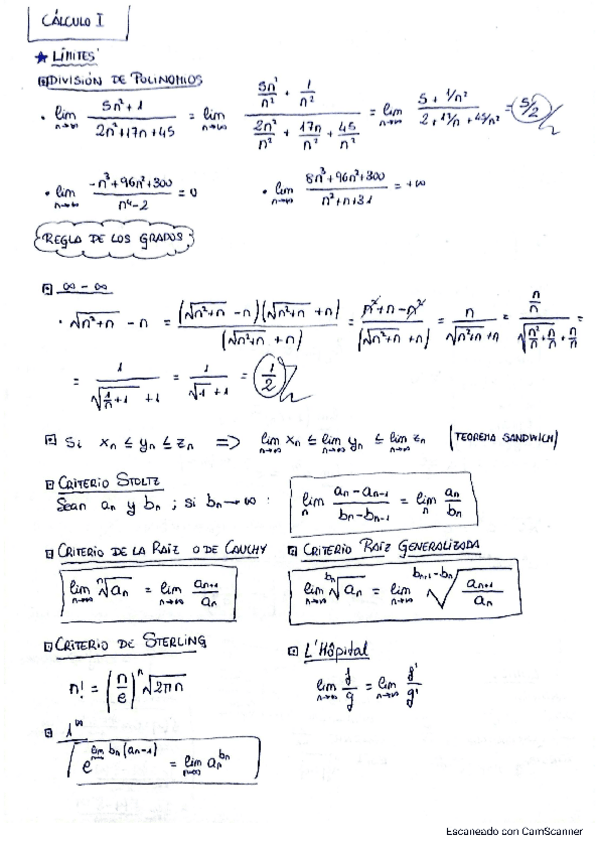 CÁLCULO I
★ LÍMITES
DIVISIÓN DE POLINOMIOS
• lim n→∞ (5n²+1)/(2n²+17n+45) = lim n→∞ (5n²/n² + 1/n²)/(2n²/n² + 17n/n² + 45/n²) = lim n→∞ (5 + 1/n²)/(2 + 17/n + 45/n²) = 5/2
• lim n→∞ (-n³+96n²+300)/(n⁴-2) = 0 • lim n→∞ (8n³+96n²+300)/(n²+n+31) = +∞
REGLA DE LOS GRADOS
∞ - ∞
• √(n²+n) - n = (√(n²+n) - n)(√(n²+n) + n)/(√(n²+n) + n) = (n²+n-n²)/(√(n²+n) + n) = n/(√(n²+n) + n) = (n/n)/(√(n²/n + n/n) + n/n) =
= 1/(√(1/n + 1) + 1) = 1/(√1 + 1) = 1/2
Si xn ≤ yn ≤ zn => lim n→∞ xn ≤ lim n→∞ yn ≤ lim n→∞ zn (TEOREMA SANDWICH)
CRITERIO STOLTZ
Sean an y bn ; si bn → ∞ : lim n (an - an-1)/(bn - bn-1) = lim n an/bn
CRITERIO DE LA RAIZ O DE CAUCHY CRITERIO RAIZ GENERALIZADA
lim n→∞ ⁿ√an = lim n→∞ an+1/an lim n→∞ ᵇⁿ√an = lim n→∞ ᵇⁿ⁺¹⁻ᵇⁿ√(an+1/an)
CRITERIO DE STERLING L'Hôpital
n! = (n/e)ⁿ √2πn lim n→∞ f/g = lim n→∞ f'/g'
1^∞
e^(lim n→∞ bn(an-1)) = lim n→∞ an^bn
Escaneado con CamScanner